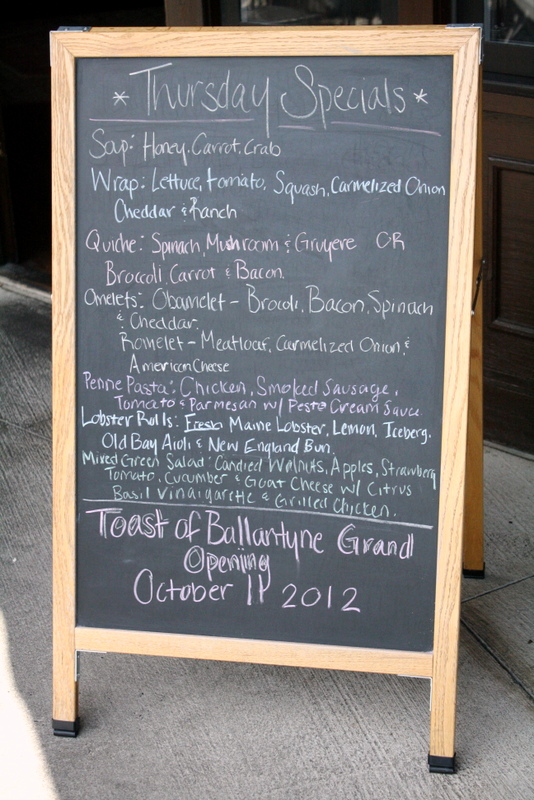 * Thursday Specials *
Soup: Honey, Carrot, Crab
Wrap: Lettuce, tomato, Squash, Carmelized Onion
Cheddar & Ranch
Quiche: Spinach, Mushroom & Gruyere OR
Broccoli Carrot & Bacon.
Omelets: Obamelet - Brocoli, Bacon, Spinach
& Cheddar.
Romelet - Meatloaf, Carmelized Onion, &
American Cheese
Penne Pasta: Chicken, Smoked Sausage,
Tomato & Parmesan w/ Pesto Cream Sauce.
Lobster Rolls: Fresh Maine Lobster, Lemon, Iceberg,
Old Bay Aioli & New England Bun.
Mixed Green Salad: Candied Walnuts, Apples, Strawberry
Tomato, Cucumber & Goat Cheese w/ Citrus
Basil Vinaigarette & Grilled Chicken.
Toast of Ballantyne Grand
Opening
October 11 2012